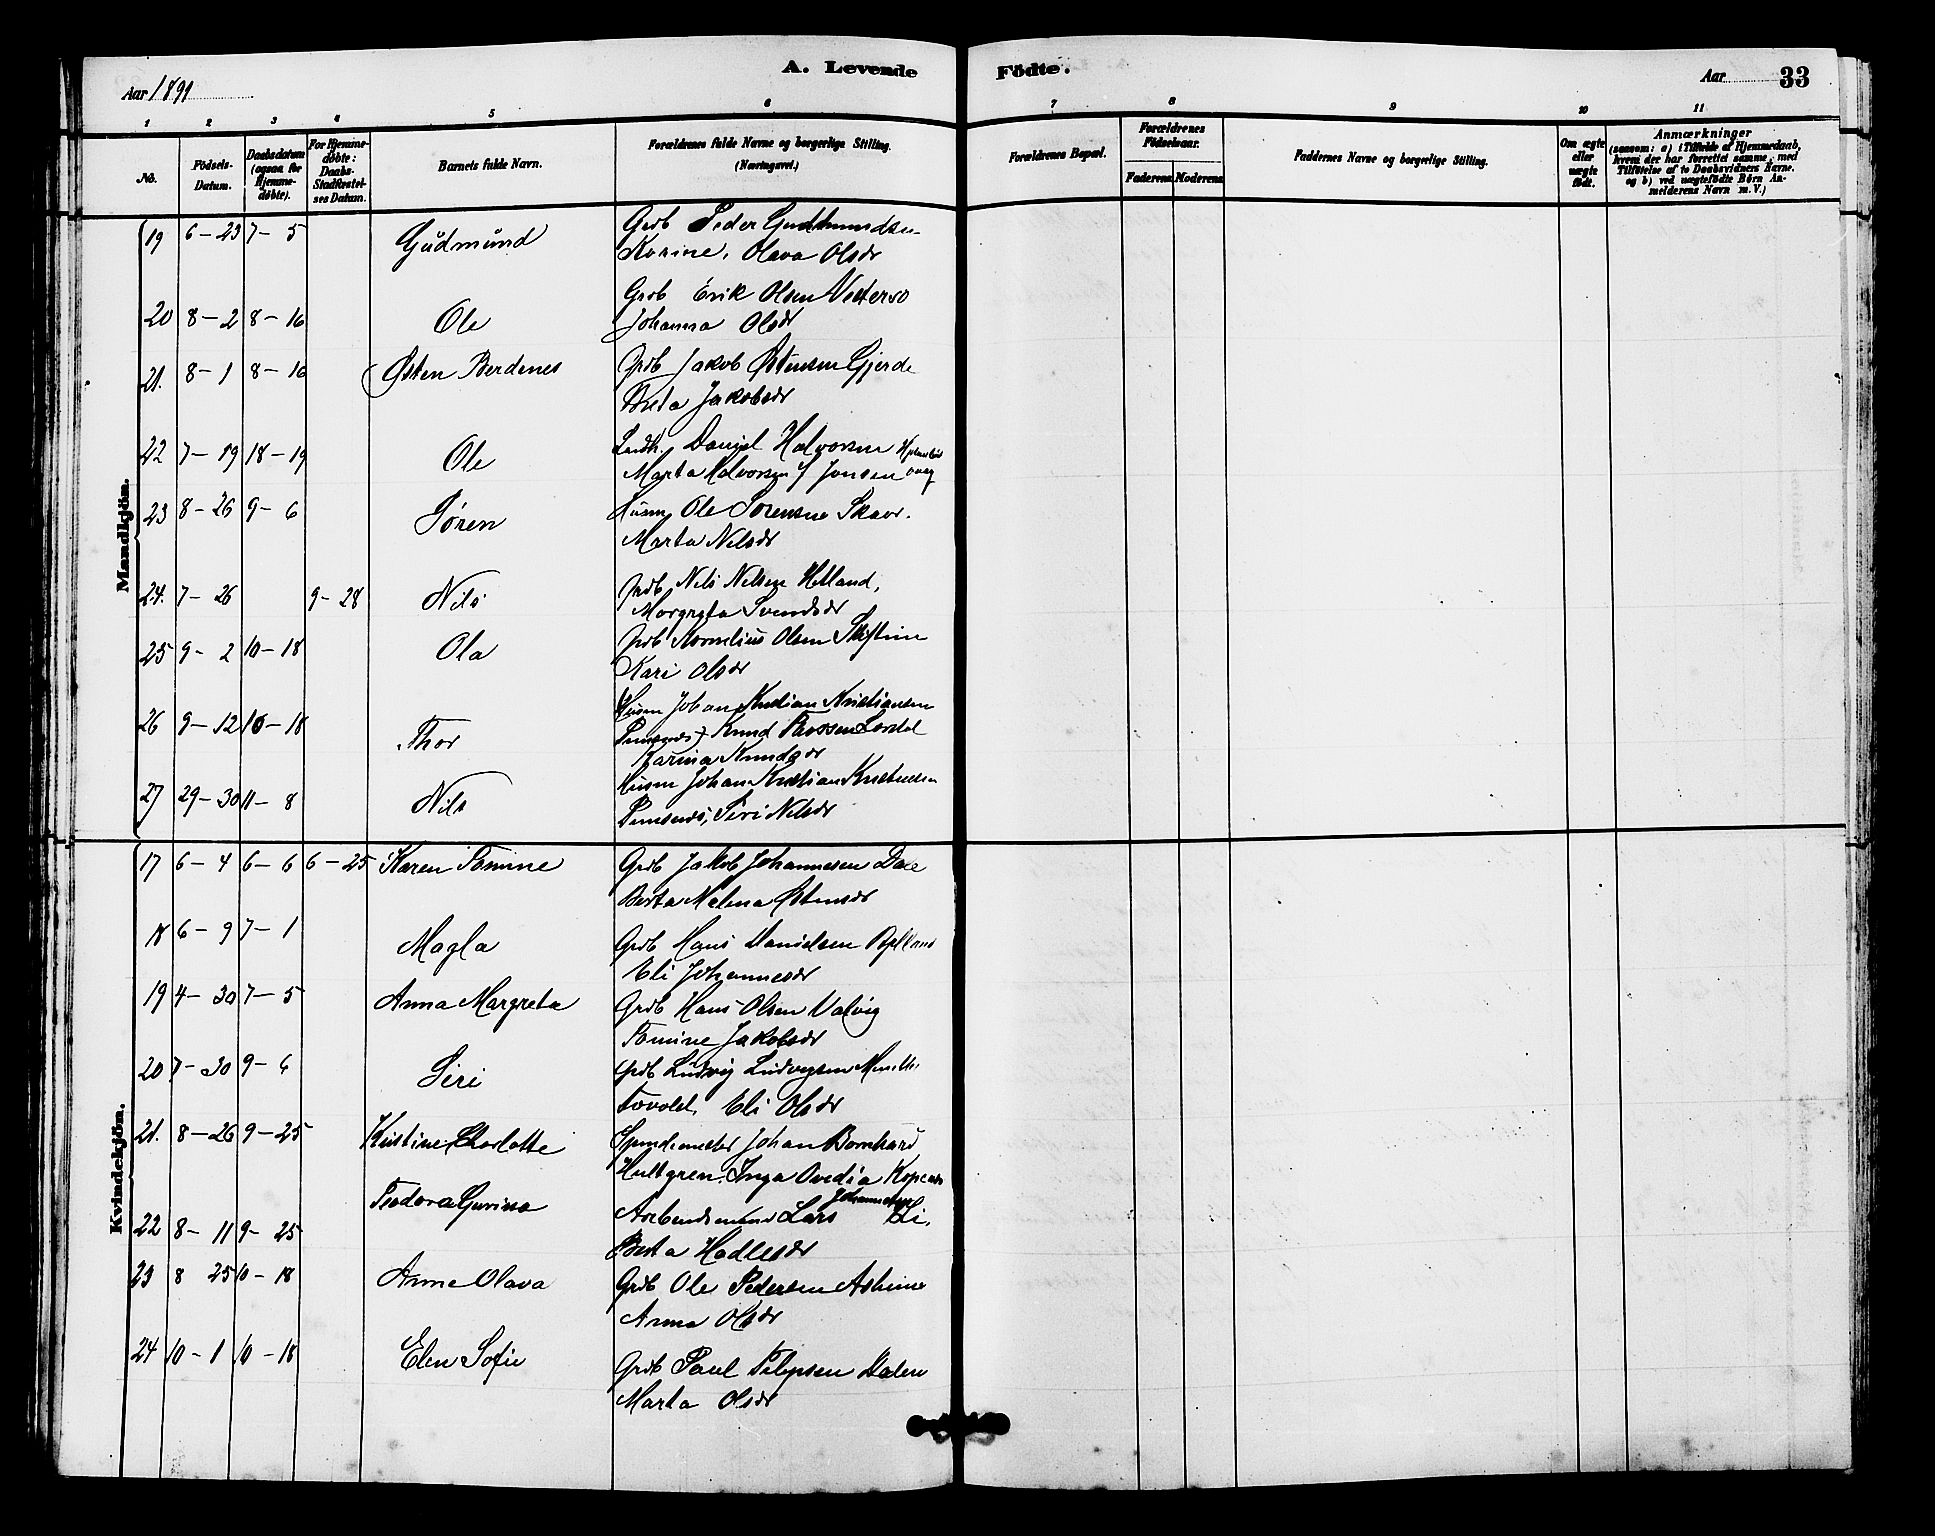 A. Levende Födte.
Aar 1891
Aar 33
1 2 3 4 5 6 7 8 9 10 11
No.
Födsels-Datum.
Daabsdatum (ogsaa for Hjemme-döbte).
For Hjemme-döbte: Daabs-Stadfæstel-ses Datum.
Barnets fulde Navn.
Forældrenes fulde Navne og borgerlige Stilling. (Næringsvei.)
Forældrenes Bopæl.
Forældrenes Födselsaar.
Faderens Moderens
Faddernes Navne og borgerlige Stilling.
Om ægte eller uægte födt.
Anmærkninger
(saasom: a) i Tilfælde af Hjemmedaab, hvem der har forrettet samme, med Tilföielse af to Daabsvidners Navne, og b) ved uægtefödte Börn An-melderens Navn m. V.)
Mandkjön.
19 6-23 7-5 Gudmund Grdb Peder Gudmundsen
Karine Olava Olsdr
20 8-2 8-16 Ole Grdb Erik Olsen
Johanna Olsdr
21. 8-1 8-16 Østen Berdenes Grdb Jakob Østensen Gjerde
Jakobsdr
22 7-19 18-19 Ole Daniel Halvorsen
Marta Halvorsen f Jonsen
23 8-26 9-6 Søren Husm Ole Sørensen
Marta Nilsdr
24. 7-26 9-28 Nils Grdb Nils Nilsen
Margreta Svendsdr
25 9-2 10-18 Ola Grdb Kornelius Olsen
Kari Olsdr
26 9-12 10-18 Thor Husm Johan Kristian Kristiansen
Knud
Karina Knudsdr
27 29-30 11-8 Nils Husm Johan Kristian
Siri Nilsdr
Kvindekjön.
17 6-4 6-6 6-25 Karen Tomine Grdb Jakob Johannesen Dale
Berta Malena Østensdr
18 6-9 7-1 Magla Grdb Hans Danielsen
Eli Johannesdr
19 4-30 7-5 Anna Margreta Grdb Hans Olsen Valvig
Tomine Jakobsdr
20 7-30 9-6 Siri Grdb Ludvig Ludvigsen
Eli Olsdr
21. 8-26 9-25 Kristine Charlotte Johan Bernhard
Hultgren, Inga Ovedia
22 8-11 9-25 Teodora Gurina Arbeidsmand Lars Johannesen Li,
Berta
23 8 25 10-18 Anne Olava Grdb Ole Pedersen
Anna Olsdr
24 10-1 10-18 Elen Sofie Grdb Paul
Marta Olsdr